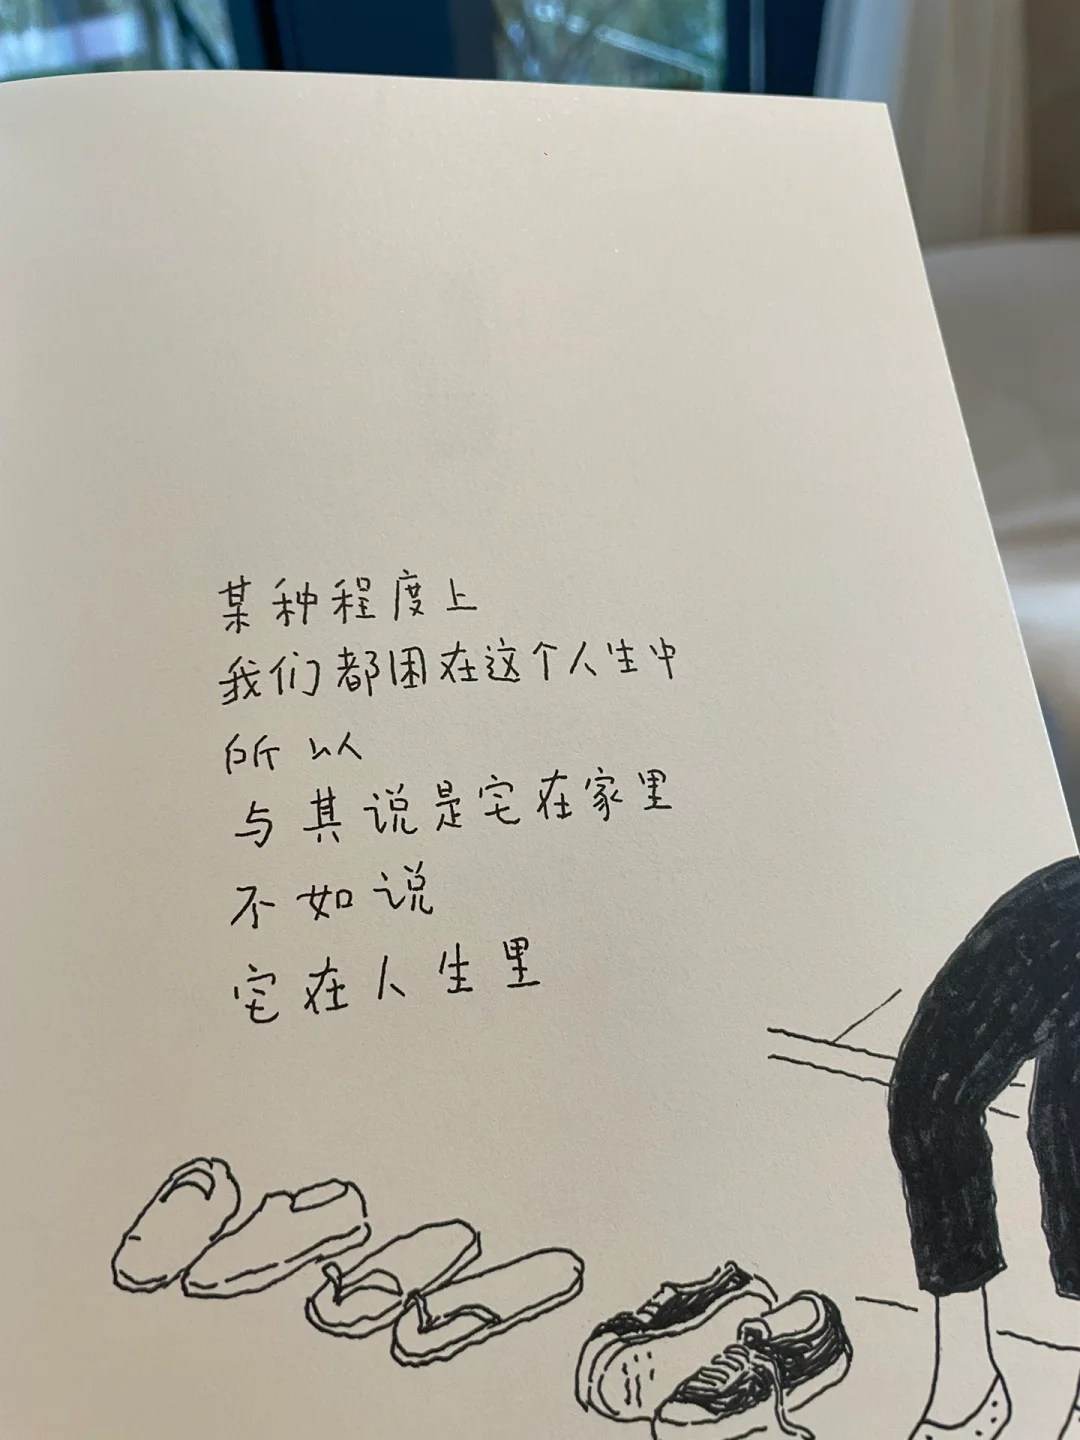 某种程度上
我们都困在这个人生中
所以
与其说是宅在家里
不如说
宅在人生里